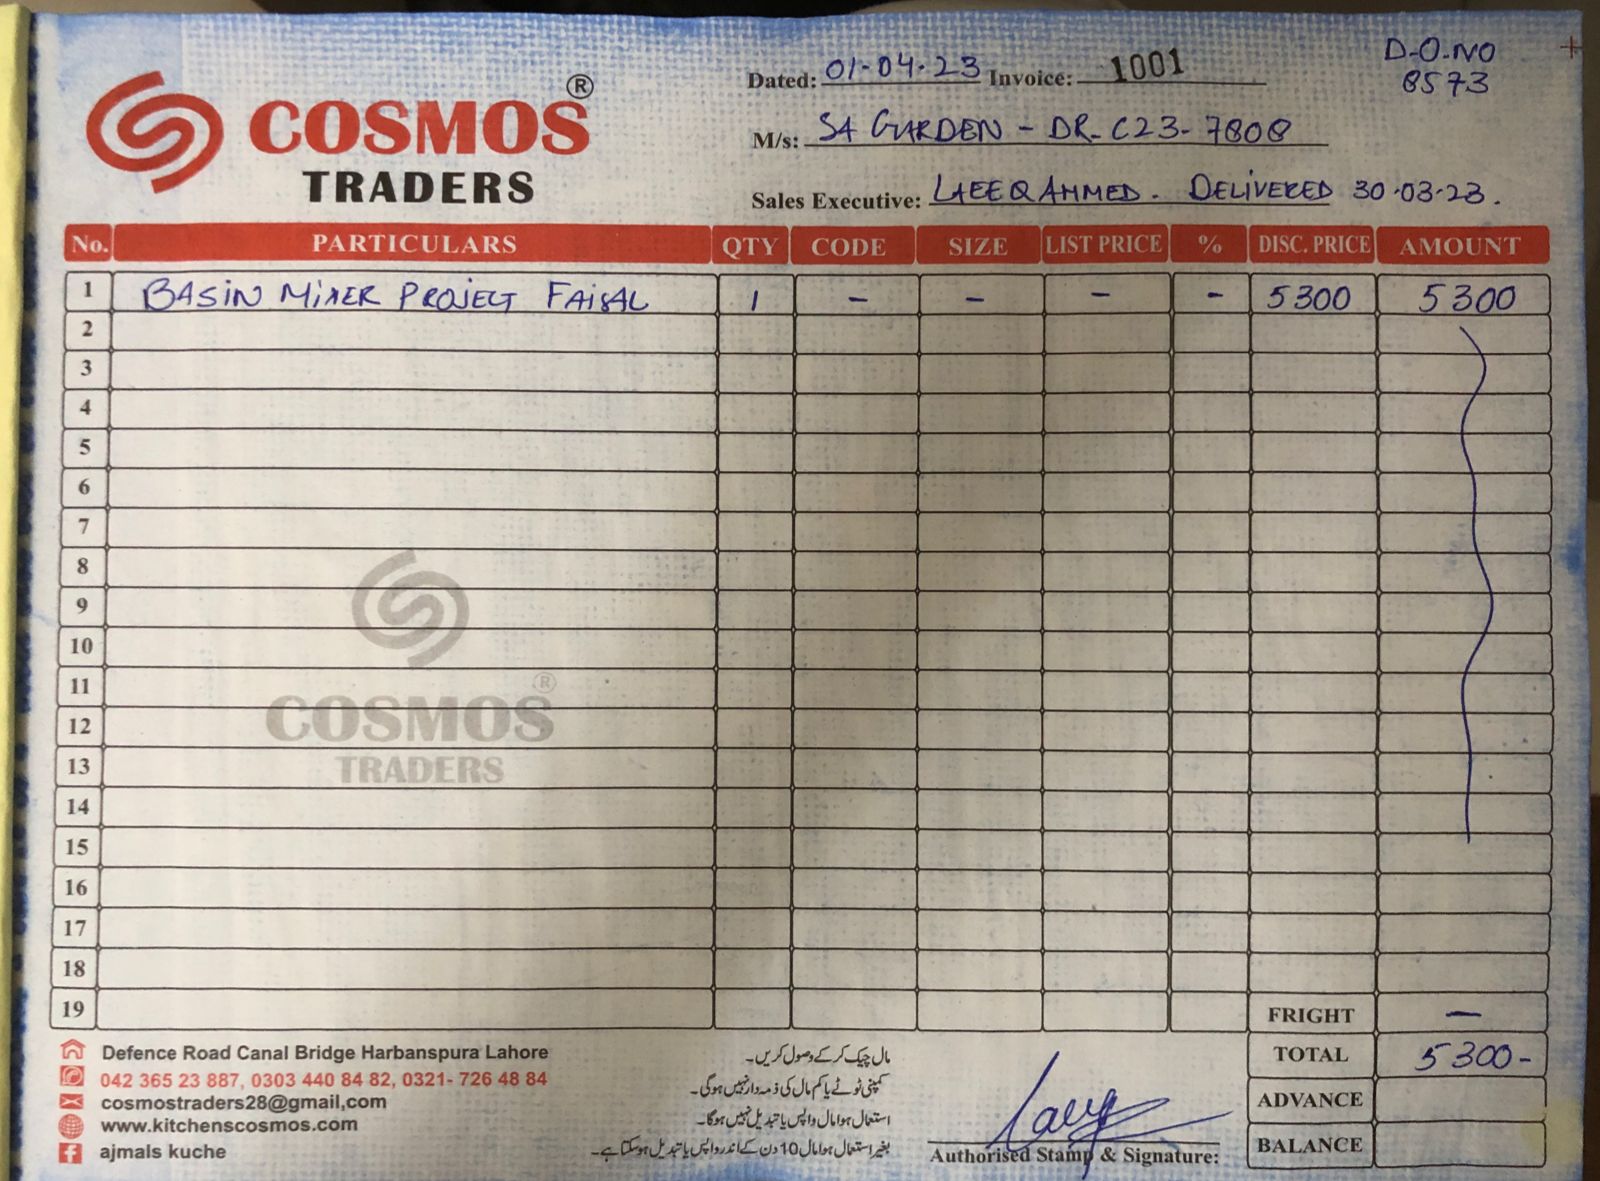 COSMOS ®
TRADERS
D-O.NO
8573
Dated: 01-04-23 Invoice: 1001
M/s: SA GARDEN - DR-C23-7808
Sales Executive: LAEEQ AHMED. DELIVERED 30-03-23.
No. PARTICULARS QTY CODE SIZE LIST PRICE % DISC. PRICE AMOUNT
1 BASIN MIXER PROJECT FAISAL 1 - - - - 5300 5300
2
3
4
5
6
7
8
9
10
11
12
13
14
15
16
17
18
19
COSMOS ®
TRADERS
FRIGHT -
TOTAL 5300-
ADVANCE
BALANCE
Defence Road Canal Bridge Harbanspura Lahore
042 365 23 887, 0303 440 84 82, 0321- 726 48 84
cosmostraders28@gmail,com
www.kitchenscosmos.com
ajmals kuche
مال چیک کر کے وصول کریں۔
کمپنی ٹوٹے یا کم مال کی ذمہ دار نہیں ہوگی۔
استعمال ہوا مال واپس یا تبدیل نہیں ہوگا۔
بغیر استعمال ہوا مال 10 دن کے اندر واپس یا تبدیل ہو سکتا ہے۔
Authorised Stamp & Signature: